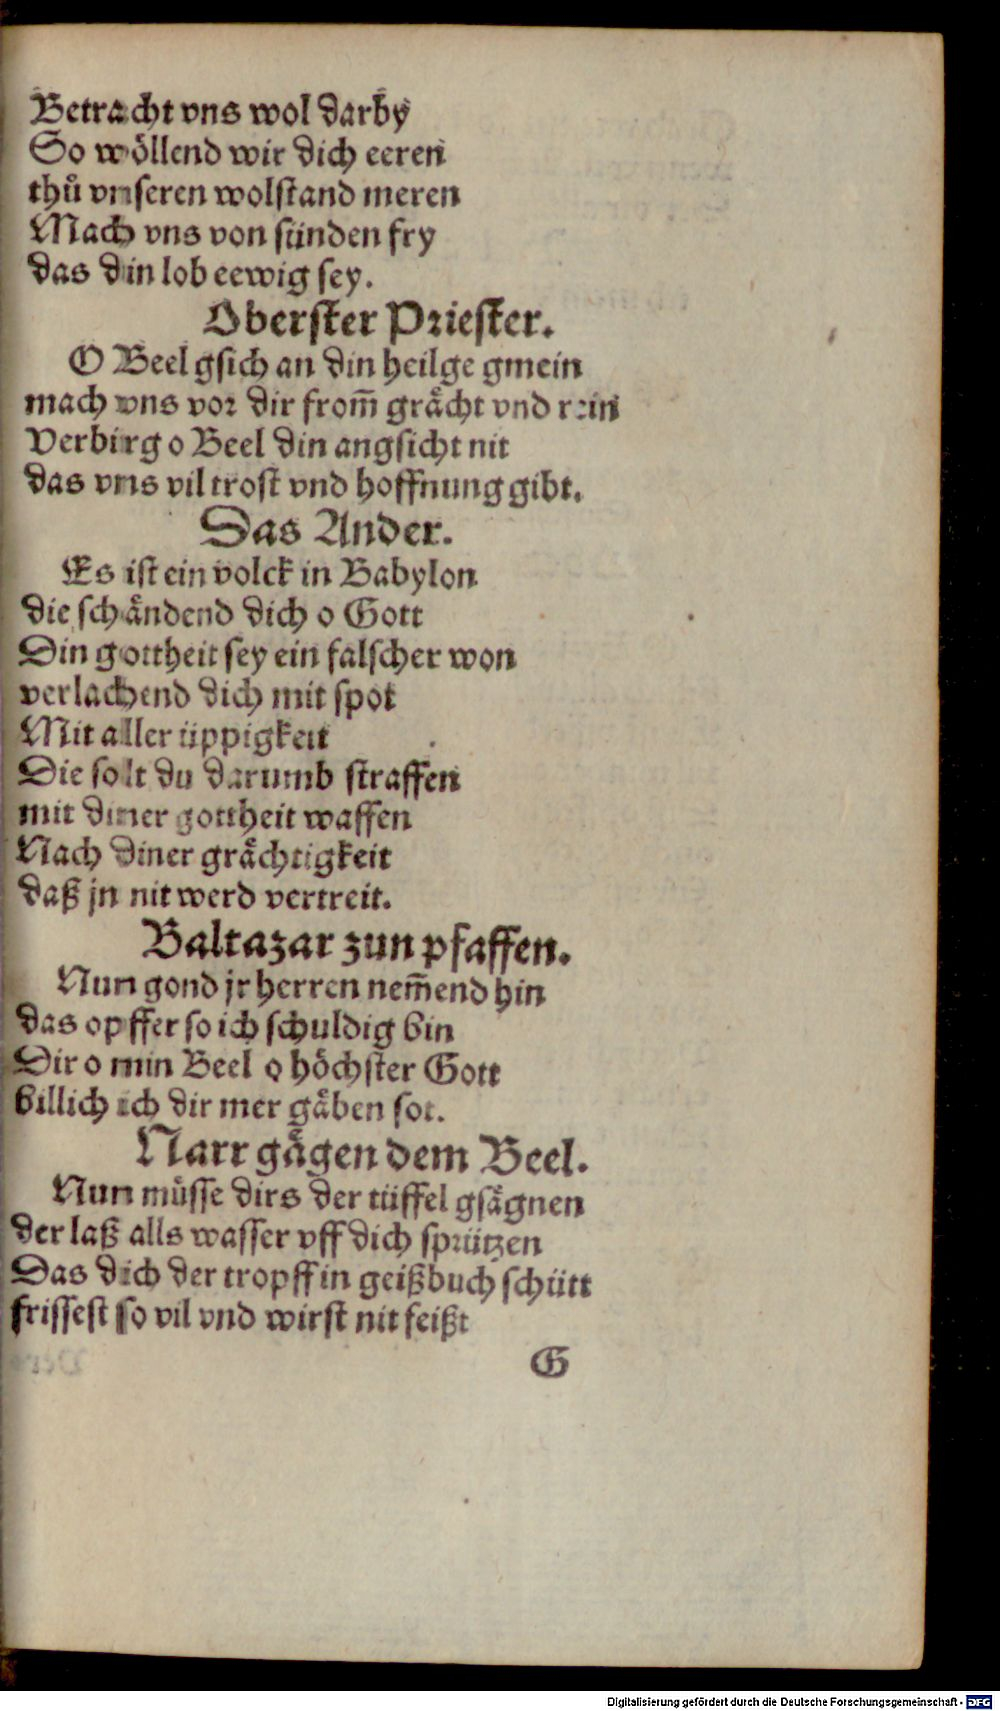 Betracht vns wol darby
So wöllend wir dich eeren
thuͦ vnseren wolstand meren
Mach vns von sünden fry
das din lob eewig sey.
Oberster Priester.
O Beel gsich an din heilge gmein
mach vns vor dir from̃ graͤcht vnd rein
Verbirg o Beel din angsicht nit
das vns vil trost vnd hoffnung gibt.
Das Ander.
Es ist ein volck in Babylon
die schaͤndend dich o Gott
Din gottheit sey ein falscher won
verlachend dich mit spot
Mit aller üppigkeit
Die solt du darumb straffen
mit diner gottheit waffen
Nach diner graͤchtigkeit
daß jn nit werd vertreit.
Baltazar zun pfaffen.
Nun gond jr herren nem̃end hin
das opffer so ich schuldig bin
Dir o min Beel o hoͤchster Gott
billich ich dir mer gaͤben sot.
Narr gaͤgen dem Beel.
Nun müsse dirs der tüffel gsaͤgnen
der laß alls wasser vff dich sprützen
Das dich der tropff in geißbuch schütt
frissest so vil vnd wirst nit feißt
G
Digitalisierung gefördert durch die Deutsche Forschungsgemeinschaft - DFG